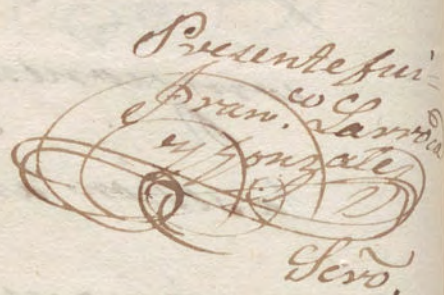 Presente fui
Fran.co Larro
y Gonzalez
Scrõ.